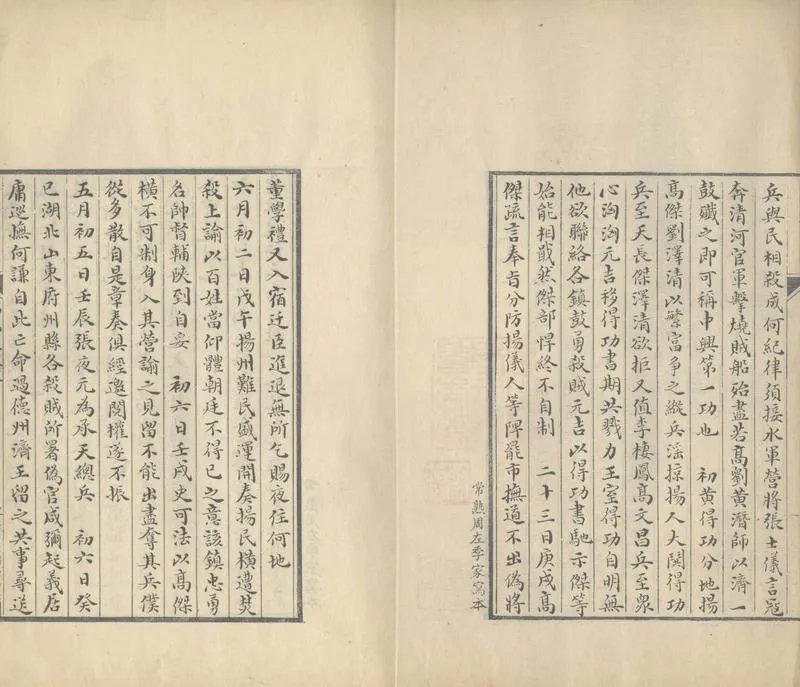 兵與民相殺成何紀律須接水軍營將張士儀言冦
奔清河官軍擊燒賊船殆盡若髙劉黃潛師以濟一
鼓殱之即可稱中興第一功也　初黃得功分地揚
髙傑劉澤清以繁富争之縱兵滛掠揚人大鬨得功
兵至天長傑澤清欲拒又值李棲鳳髙文昌兵至衆
心洶洶元吉移得功書期共戮力王室得功自明無
他欲聯絡各鎮鼓勇殺賊元吉以得功書馳示傑等
始能相戢然傑部悍終不自制　二十三日庚戌髙
傑疏言奉㫖分防揚儀人等陴罷市撫道不出偽將
常熟周左季家寫本
董學禮又入宿迁臣進退無所乞賜夜住何地
六月初二日戊午揚州難民盛運開奏揚民横遭焚
殺上諭以百姓當仰體朝廷不得已之意該鎮忠勇
名帥督輔陜到自妥　初六日壬戌史可法以髙傑
横不可制身入其營諭之見留不能出盡奪其兵僕
從多散自是章奏俱經邀閱權遂不振
五月初五日壬辰張夜元為承天總兵　初六日癸
巳湖北山東府州縣各殺賊所署偽官咸彌起義居
庸巡撫何謙自此亡命過德州濟王留之共事尋送